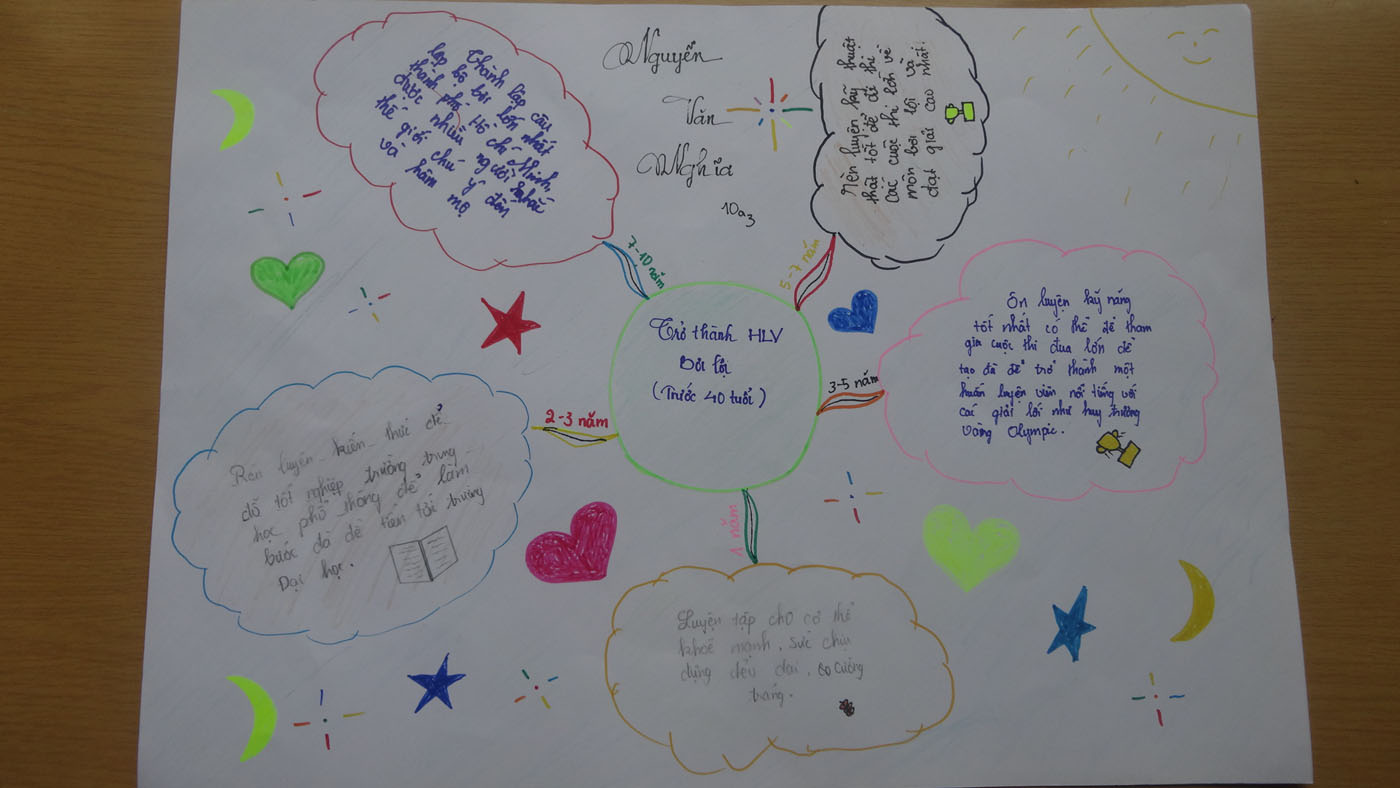 Nguyễn
Văn
Nghĩa
10a3
Thành lập câu
lạp bộ bơi lớn nhất
thành phố Hồ Chí Minh
được nhiều người khắc
thế giới chú ý đến
và hâm mộ
7-10 năm
Rèn luyện kỹ thuật
thật tốt để đề thi
các cuộc thi lớn về
môn bơi lội và
đạt giải cao nhất.
5-7 năm
Trở thành HLV
Bơi lội
(Trước 40 tuổi)
3-5 năm
Ôn luyện kỹ năng
tốt nhất có thể để tham
gia cuộc thi đua lớn để
tạo đà để trở thành một
huấn luyện viên nổi tiếng với
các giải lới như huy trương
vàng Olympic.
2-3 năm
Rèn luyện kiến thức để
đỗ tốt nghiệp trường trung
học phổ thông để làm
bước đà để tiến tới trường
Đại học.
1 năm
Luyện tập cho cơ thể
khoẻ mạnh, sức chịu
đựng dẻo dai, cường
tráng.